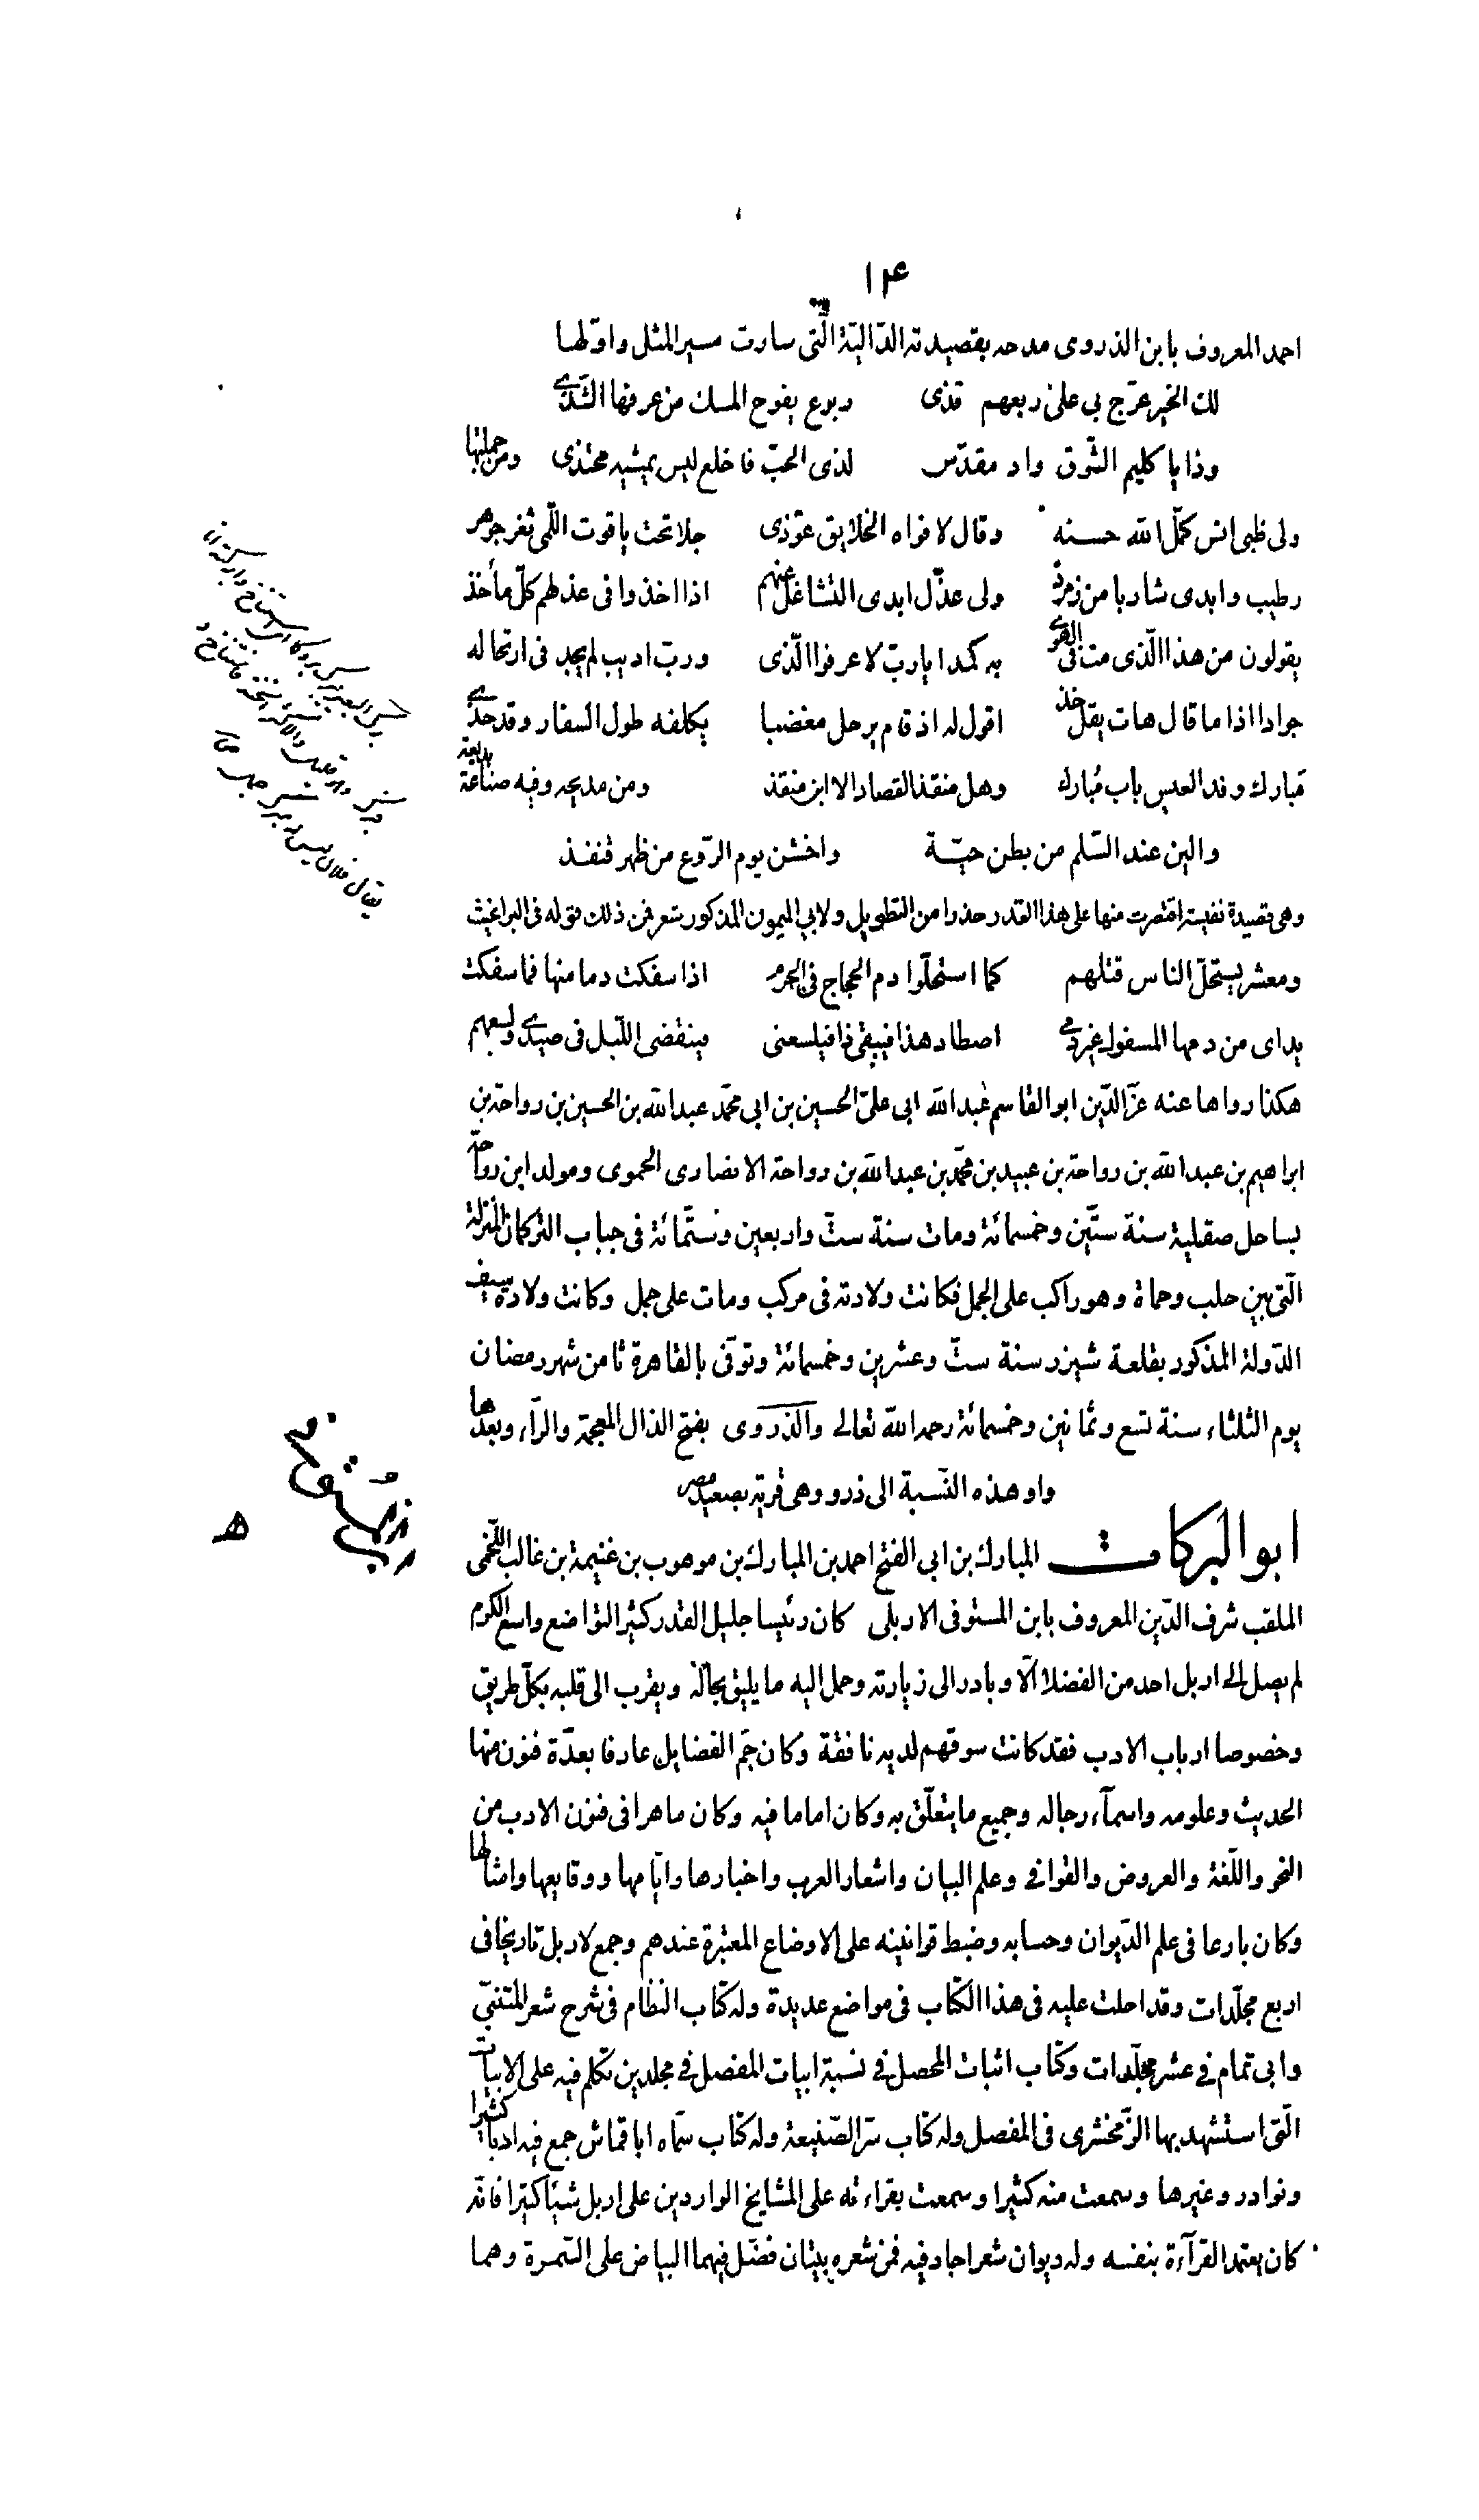 ١٤
احمد المعروف بابن الذروى مدحه بقصيدته الدّاليّة الّتى سارت مسير المثل واوّلها
لك الخير عرّج بي على ربعهم قذى ربوع يفوح المسك من عرفها الشّذى
وذا يا كليم الشّوق واد مقدّس لذى الحبّ فاخلع ليس يمشيه محتذى ومن جملتها
ولى ظبى انس كمّل الله حسنه وقال لافواه الخلايق عوّذى جلا تحت ياقوت اللّمى ثغر جوهر
رطيب وابدى شاربا من زمرّذ ولى عذّل ابدى التشاغل عنهم اذا اخذوا فى عذلهم كلّ مأخذ
يقولون من هذا الّذى مت فى الهوى به كمدا يا ربّ لا عرفوا الّذى وربّ اديب لم يجد فى ارتحاله
جوادا اذا ما قال هات يقل خذ اقول له اذ قام يرحل مغضبا يكلفه طول السفار وقد حذى
مبارك وفد العيس باب مُبارك وهل منقذ القصاد الا ابن منقذ ومن مديحه وفيه صناعة بديعة
والين عند السّلم من بطن حيّة واخشن يوم الرّوع من ظهر قنفذ
وهى قصيدة نفيسة اقتصرت منها على هذا القدر حذرا من التطويل ولابى الميمون المذكور شعر فمن ذلك قوله فى البراغيث
ومعشر يستحلّ الناس قتلهم كما استحلّوا دم الحجاج فى الحرم اذا سفكت دما منها فما سفكت
يداى من دمها المسفوك غير دمى اصطاد هذا فيبقى ذا فيلسعنى فينقضى اللّيل فى صيدى ولسعهم
هكذا رواها عنه عزّ الدّين ابو القاسم عبد الله ابى علىّ الحسين بن ابى محمّد عبد الله بن الحسين بن رواحة بن
ابراهيم بن عبد الله بن رواحة بن عبيد بن محمّد بن عبد الله بن رواحة الانصارى الحموى ومولد ابن رواحة
بساحل صقلية سنة ستّين وخمسمائة ومات سنة ستّ واربعين وستّمائة فى جباب التركمان المنزلة
الّتى بين حلب وحماة وهو راكب على الجمل فكانت ولادته فى مركب ومات على جمل وكانت ولادة سيف
الدّولة المذكور بقلعة شيزر سنة ستّ وعشرين وخمسمائة وتوفّى بالقاهرة ثامن شهر رمضان
يوم الثلثاء سنة تسع وثمانين وخمسمائة رحمه الله تعالى والذّروى بفتح الذال المعجمة والرّاء وبعدها
واو هذه النّسبة الى ذرو وهى قرية بصعيد مصر
ابو البركات المبارك بن ابى الفتح احمد بن المبارك بن موهوب بن غنيمة بن غالب اللّخمى
الملقب شرف الدّين المعروف بابن المستوفى الاربلى كان رئيسا جليل القدر كثير التواضع واسع الكرم
لم يصل الى اربل احد من الفضلا الّا وبادر الى زيارته وحمل اليه ما يليق بحاله ويقرب الى قلبه بكلّ طريق
وخصوصا ارباب الادب فقد كانت سوقهم لديه نافقة وكان جمّ الفضايل عارفا بعدّة فنون منها
الحديث وعلومه واسمآء رجاله وجميع ما يتعلّق به وكان اماما فيه وكان ماهرا فى فنون الادب من
النحو واللّغة والعروض والقوافى وعلم البيان واشعار العرب واخبارها وايّامها ووقايعها وامثالها
وكان بارعا فى علم الدّيوان وحسابه وضبط قوانينه على الاوضاع المعتبرة عندهم وجمع لاربل تاريخا فى
اربع مجلّدات وقد احلت عليه فى هذا الكتاب فى مواضع عديدة وله كتاب النظام فى شرح شعر المتنبّى
وابى تمام فى عشر مجلّدات وكتاب اثبات المحصل فى نسبة ابيات المفصل فى مجلدين تكلم فيه على الابيات
الّتى استشهد بها الزّمخشرى فى المفصل وله كتاب سرّ الصّنيعة وله كتاب سمّاه ابا قماش جمع فيه ادبا كثيرا
ونوادر وغيرها وسمعت منه كثيرا وسمعت بقراءته على المشايخ الواردين على اربل شيئا كثيرا فانّه
كان يعتمد القرآءة بنفسه وله ديوان شعر اجاد فيه فمن شعره بيتان فضّل فيهما البياض على السّمرة وهما